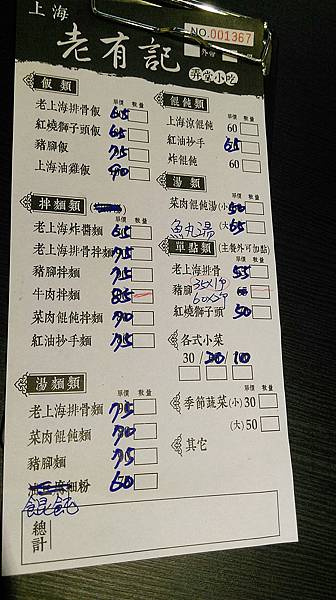 上海
NO.001367
外帶
老有記
弄堂小吃
飯類 單價 數量
老上海排骨飯 65
紅燒獅子頭飯 65
豬腳飯 75
上海油雞飯 90
拌麵類 單價 數量
老上海炸醬麵 65
老上海排骨拌麵 75
豬腳拌麵 75
牛肉拌麵 85
菜肉餛飩拌麵 70
紅油抄手麵 75
湯麵類 單價 數量
老上海排骨麵 75
菜肉餛飩麵 70
豬腳麵 75
細粉 60
餛飩
總計
餛飩類 單價 數量
上海涼餛飩 60
紅油抄手 65
炸餛飩 60
湯類 單價 數量
菜肉餛飩湯(小) 50
魚丸湯 (大) 65
單點類 (主餐外可加點)
單價 數量
老上海排骨 55
豬腳 35x1P
60x2P
紅燒獅子頭 50
各式小菜
30 / 50 / 100
季節蔬菜(小) 30
(大) 50
其它